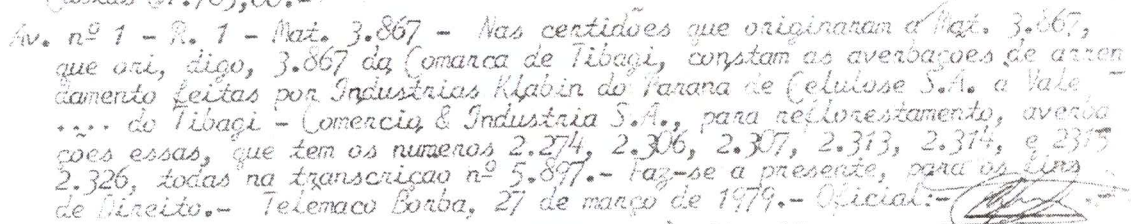 Av. nº 1 - R. 1 - Mat. 3.867 - Nas certidões que originaram a Mat. 3.867,
que ori, digo, 3.867 da Comarca de Tibagi, constam as averbaçoes de arren
damento feitas por Industrias Klabin do Parana de Celulose S.A. a Vale
.... do Tibagi - Comercio & Industria S.A., para reflorestamento, averba
çoes essas, que tem os numeros 2.274, 2.306, 2.307, 2.313, 2.314, e 2315
2.326, todas na transcriçao nº 5.897.- Faz-se a presente, para os fins
de Direito.- Telemaco Borba, 27 de março de 1979.- Oficial:-